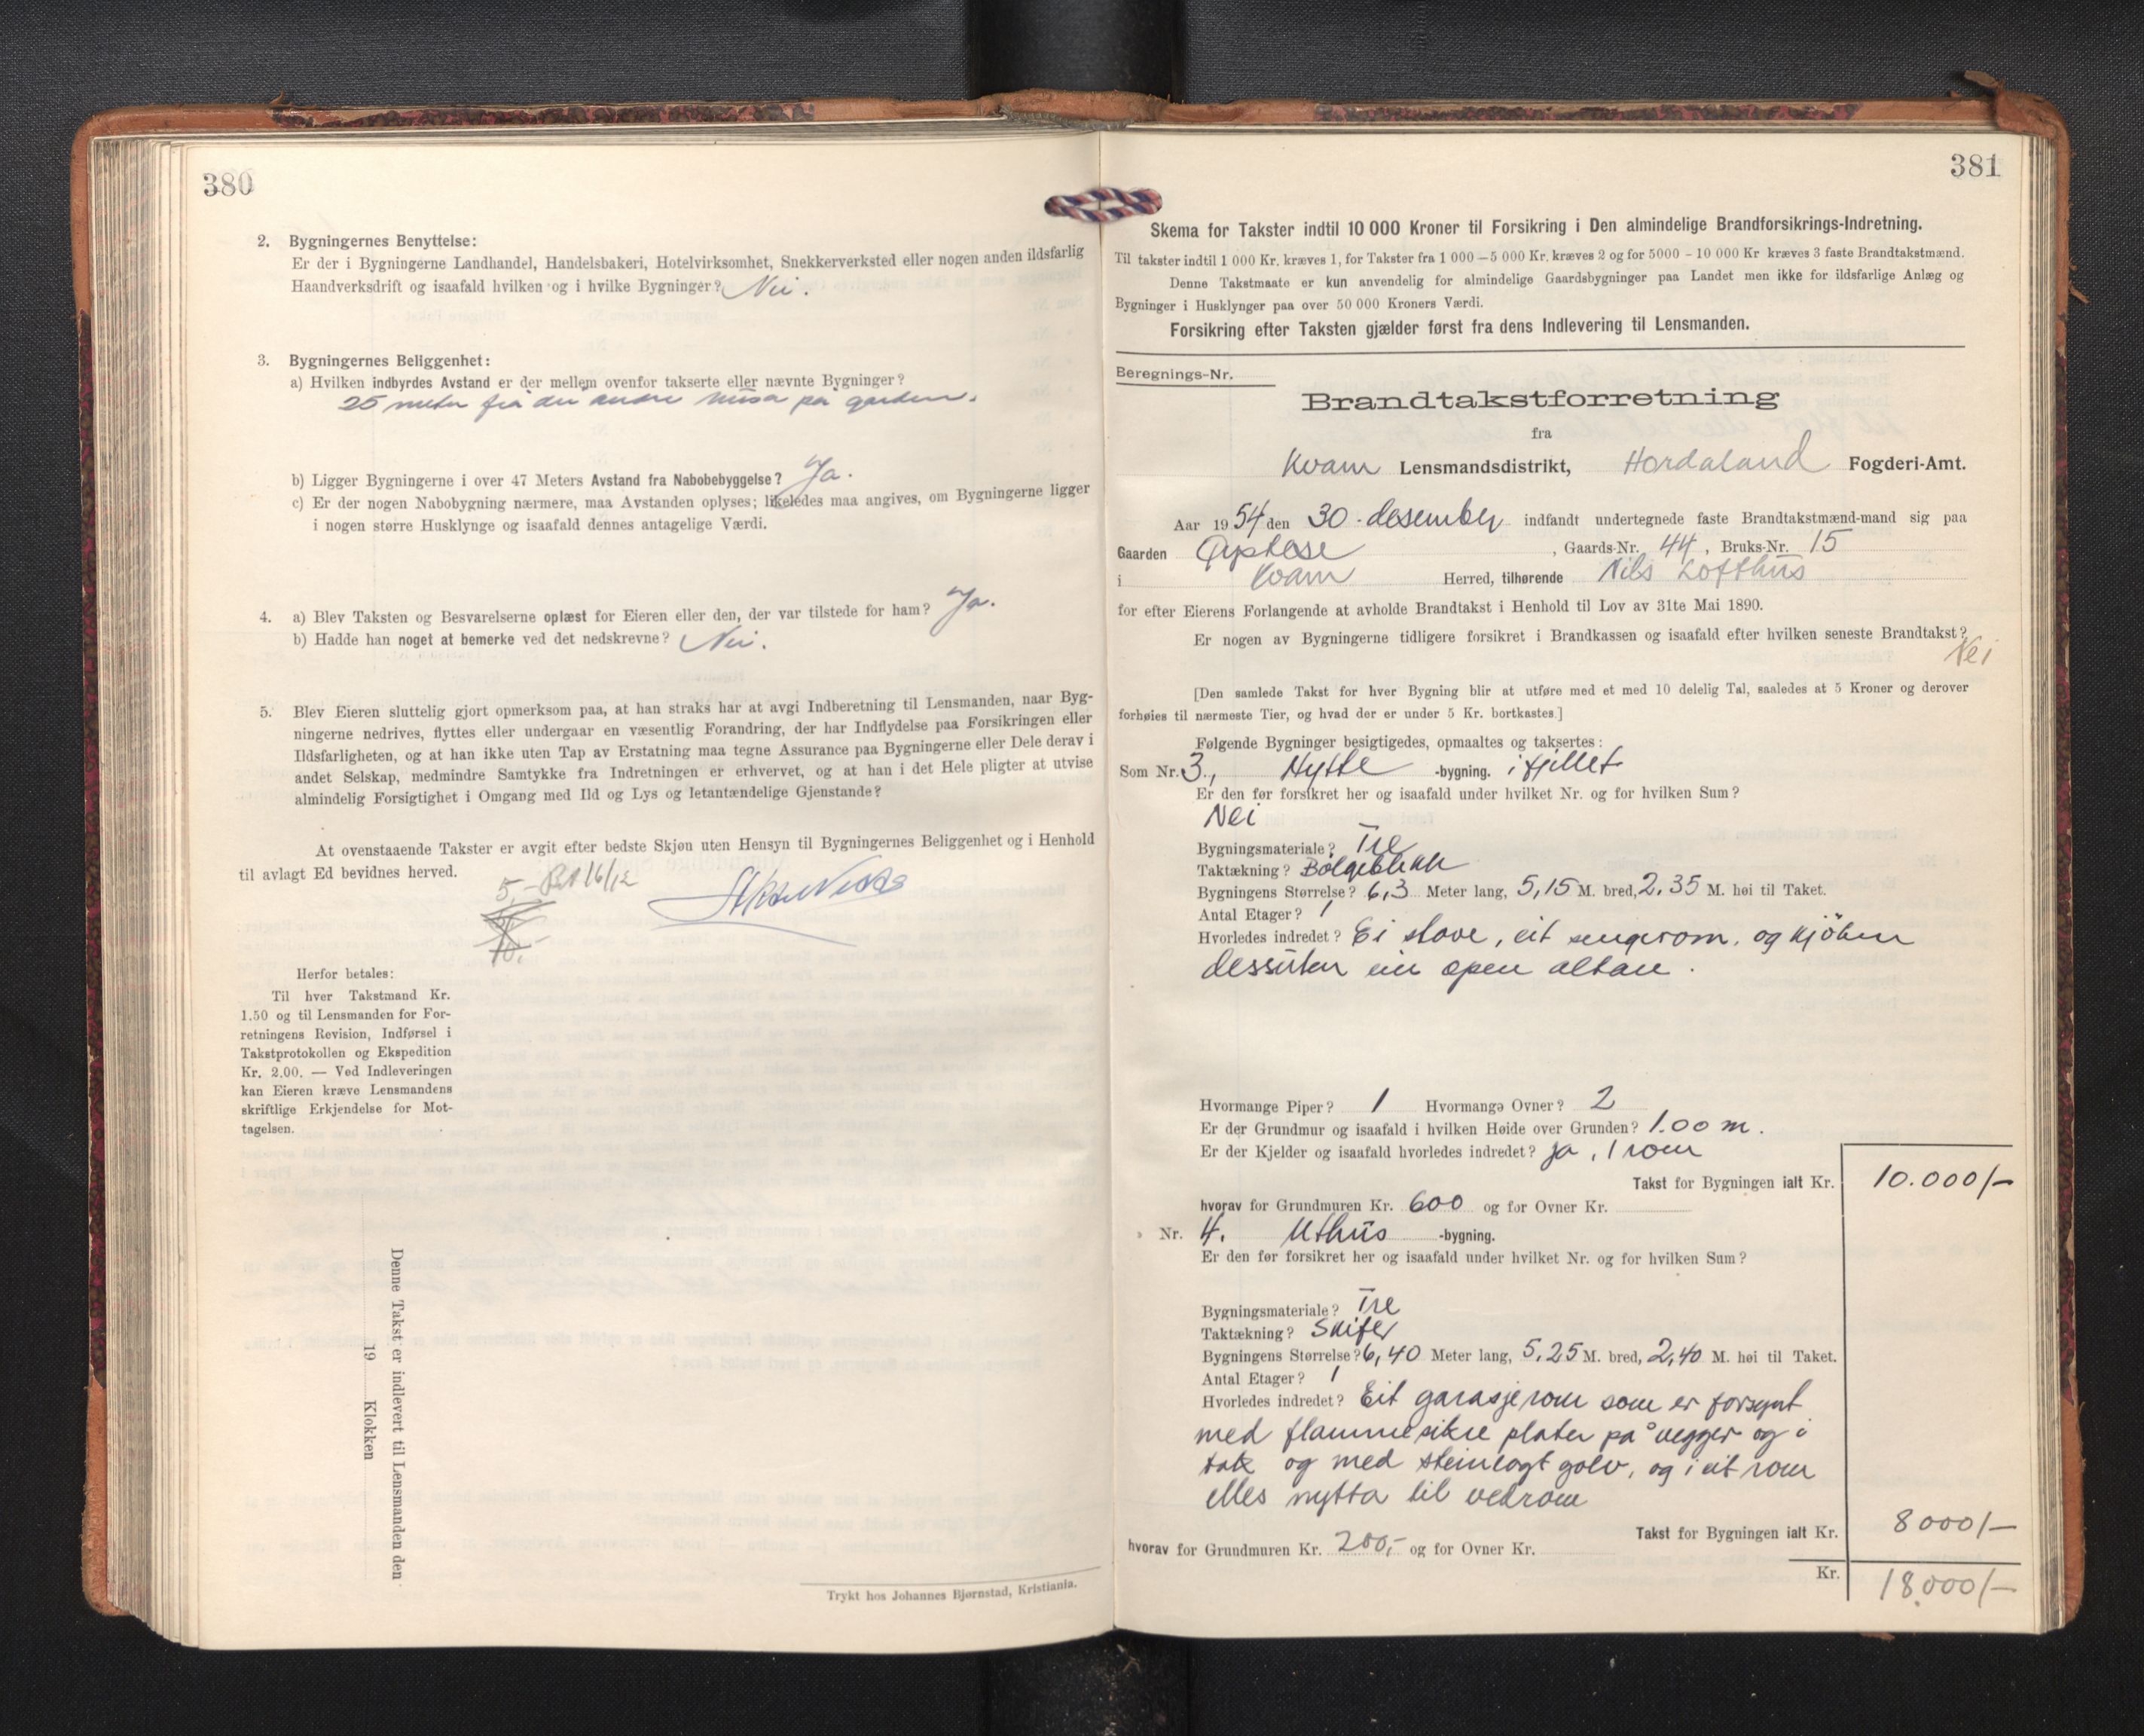 380
2. Bygningernes Benyttelse:
Er der i Bygningerne Landhandel, Handelsbakeri, Hotelvirksomhet, Snekkerverksted eller nogen anden ildsfarlig
Haandverksdrift og isaafald hvilken og i hvilke Bygninger? Nei.
3. Bygningernes Beliggenhet:
a) Hvilken indbyrdes Avstand er der mellem ovenfor takserte eller nævnte Bygninger?
25 meter frå dei andre husa på garden.
b) Ligger Bygningerne i over 47 Meters Avstand fra Nabobebyggelse? Ja.
c) Er der nogen Nabobygning nærmere, maa Avstanden oplyses; likeledes maa angives, om Bygningerne ligger
i nogen større Husklynge og isaafald dennes antagelige Værdi.
4. a) Blev Taksten og Besvarelserne oplæst for Eieren eller den, der var tilstede for ham? Ja.
b) Hadde han noget at bemerke ved det nedskrevne? Nei.
5. Blev Eieren sluttelig gjort opmerksom paa, at han straks har at avgi Indberetning til Lensmanden, naar Byg-
ningerne nedrives, flyttes eller undergaar en væsentlig Forandring, der har Indflydelse paa Forsikringen eller
Ildsfarligheten, og at han ikke uten Tap av Erstatning maa tegne Assurance paa Bygningerne eller Dele derav i
andet Selskap, medmindre Samtykke fra Indretningen er erhvervet, og at han i det Hele pligter at utvise
almindelig Forsigtighet i Omgang med Ild og Lys og letantændelige Gjenstande?
At ovenstaaende Takster er avgit efter bedste Skjøn uten Hensyn til Bygningernes Beliggenhet og i Henhold
til avlagt Ed bevidnes herved.
5,- 16/12
Herfor betales:
Til hver Takstmand Kr.
1.50 og til Lensmanden for For-
retningens Revision, Indførsel i
Takstprotokollen og Ekspedition
Kr. 2.00. — Ved Indleveringen
kan Eieren kræve Lensmandens
skriftlige Erkjendelse for Mot-
tagelsen.
Denne Takst er indlevert til Lensmanden den
19 Klokken
Trykt hos Johannes Bjørnstad, Kristiania.
381
Skema for Takster indtil 10 000 Kroner til Forsikring i Den almindelige Brandforsikrings-Indretning.
Til takster indtil 1 000 Kr. kræves 1, for Takster fra 1 000 — 5 000 Kr. kræves 2 og for 5000 - 10 000 Kr kræves 3 faste Brandtakstmænd.
Denne Takstmaate er kun anvendelig for almindelige Gaardsbygninger paa Landet men ikke for ildsfarlige Anlæg og
Bygninger i Husklynger paa over 50 000 Kroners Værdi.
Forsikring efter Taksten gjælder først fra dens Indlevering til Lensmanden.
Beregnings-Nr.
Brandtakstforretning
fra
Kvam Lensmandsdistrikt, Hordaland Fogderi-Amt.
Aar 1954 den 30. desember indfandt undertegnede faste Brandtakstmænd-mand sig paa
Gaarden Øystese, Gaards-Nr. 44, Bruks-Nr. 15
i Kvam Herred, tilhørende Nils Lofthus
for efter Eierens Forlangende at avholde Brandtakst i Henhold til Lov av 31te Mai 1890.
Er nogen av Bygningerne tidligere forsikret i Brandkassen og isaafald efter hvilken seneste Brandtakst?
Nei
[Den samlede Takst for hver Bygning blir at utføre med et med 10 delelig Tal, saaledes at 5 Kroner og derover
forhøies til nærmeste Tier, og hvad der er under 5 Kr. bortkastes.]
Følgende Bygninger besigtigedes, opmaaltes og taksertes:
Som Nr. 3., Hytte -bygning. i fjillet
Er den før forsikret her og isaafald under hvilket Nr. og for hvilken Sum?
Nei
Bygningsmateriale? Tre
Taktækning? Bølgeblekk
Bygningens Størrelse? 6,3 Meter lang, 5,15 M. bred, 2,35 M. høi til Taket.
Antal Etager? 1
Hvorledes indredet? Ei stove, eit sengerom, og kjöken
dessuten ein open altan.
Hvormange Piper? 1 Hvormange Ovner? 2
Er der Grundmur og isaafald i hvilken Høide over Grunden? 1.00 m.
Er der Kjelder og isaafald hvorledes indredet? ja, 1 rom
Takst for Bygningen ialt Kr. 10.000/-
hvorav for Grundmuren Kr. 600 og for Ovner Kr.
Nr. 4. Uthus -bygning.
Er den før forsikret her og isaafald under hvilket Nr. og for hvilken Sum?
Bygningsmateriale? Tre
Taktækning? Skifer
Bygningens Størrelse? 6,40 Meter lang, 5,25 M. bred, 2,40 M. høi til Taket.
Antal Etager? 1
Hvorledes indredet? Eit garasjerom som er forsynt
med flammesikre plater på vegger og i
tak og med steinlagt golv, og i eit rom
elles nytta til vedrom
Takst for Bygningen ialt Kr. 8000/-
hvorav for Grundmuren Kr. 200,- og for Ovner Kr.
Kr. 18.000/-